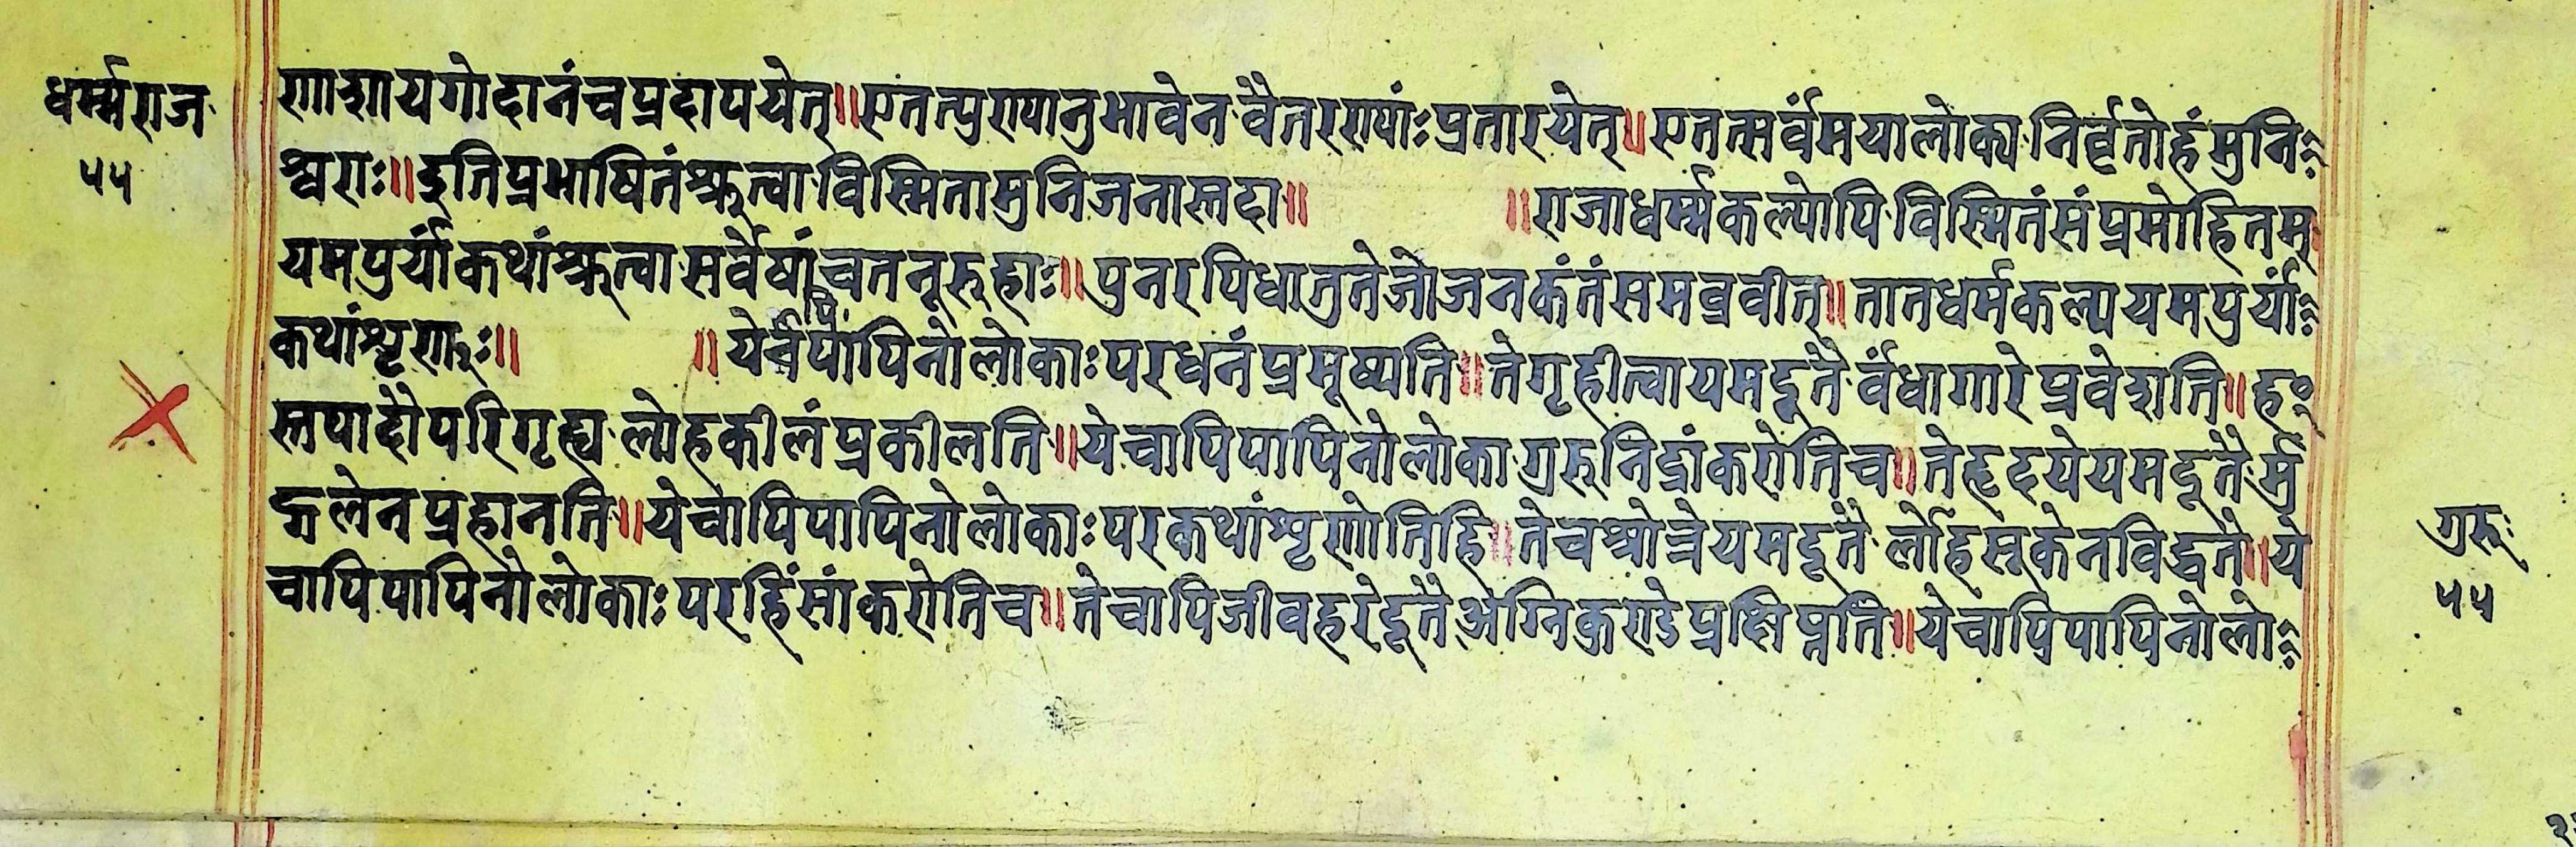 धर्म्मराज
५५
णाशाय गोदानं च प्रदापयेत्॥ एतत्पुण्यानुभावेन वैतरण्यांः प्रतारयेत्॥ एतत्सर्वंमयालोक्य निर्वृतोहं मुनि
श्वराः॥ इति प्रभाषितं श्रुत्वा विस्मिता मुनिजनास्तदा॥ ॥ राजाधर्म्मकल्पोपि विस्मितं संप्रमोहितम्
यमपुर्यां कथां श्रुत्वा सर्वेषां च तनूरुहाः॥ पुनरपि धातुतेजो जनकं तं समब्रवीत्॥ तातधर्मकल्प यमपुर्यां
कथां शृणुः॥ ॥ ये चापि पापिनो लोकाः परधनं प्रमूष्यति॥ ते गृहीत्वा यमदूतै र्वंधागारे प्रवेशति॥ ह
स्तपादौ परिगृह्य लोहकीलं प्रकीलति॥ ये चापि पापिनो लोका गुरुनिद्रां करोति च॥ ते हृदये यमदूतै र्मु
द्गलेन प्रहानति॥ ये चापि पापिनो लोकाः परकथां शृणोति हि॥ ते च श्रोत्रे यमदूतै लोहसूकेन विद्ध्वते॥ ये
चापि पापिनो लोकाः परहिंसां करोति च॥ ते चापि जीवहरेदूतै अग्निकुण्डे प्रक्षिप्नति॥ ये चापि पापिनो लो
गुरुः
५५